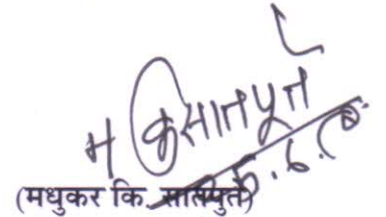 म कि सातपुते
(मधुकर कि. सातपुते)